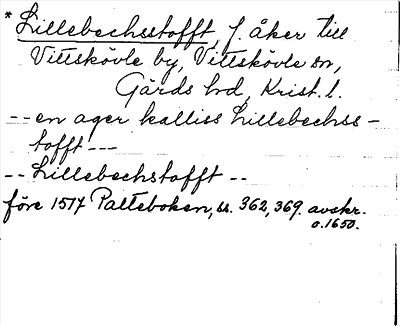 * Lillebechsstofft, f. åker till
Vittskövle by, Vittskövle sn,
Gärds hd, Krist. l.
-- en ager kalliss Lillebechss-
tofft ---
-- Lillebechstofft --
före 1517 Palteboken, ss. 362, 369. avskr.
o. 1650.